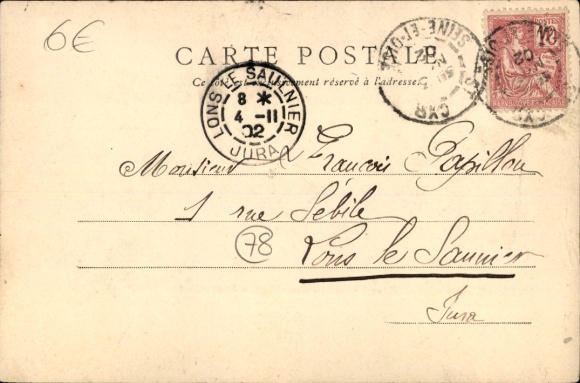 6€
CARTE POSTALE
Ce côté est exclusivement réservé à l'adresse
LONS-LE-SAUNIER
8 *
4 -11
02
JURA
CYR
SEINE-ET-OISE
POSTES
Monsieur François Papillon
1 rue Sébile
78
Lons le Saunier
Jura